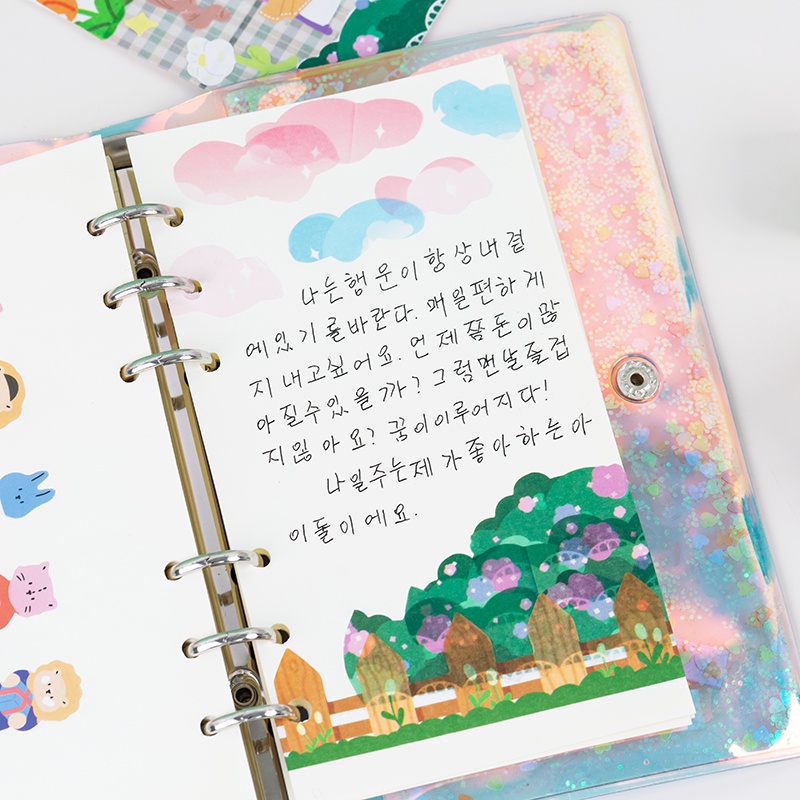 나는행운이항상내곁
에있기를바란다. 매일편하게
지내고싶어요. 언제쯤돈이많
아질수있을까? 그럼면날즐겁
지않아요? 꿈이이루어지다!
나일주는제가좋아하는아
이돌이에요.